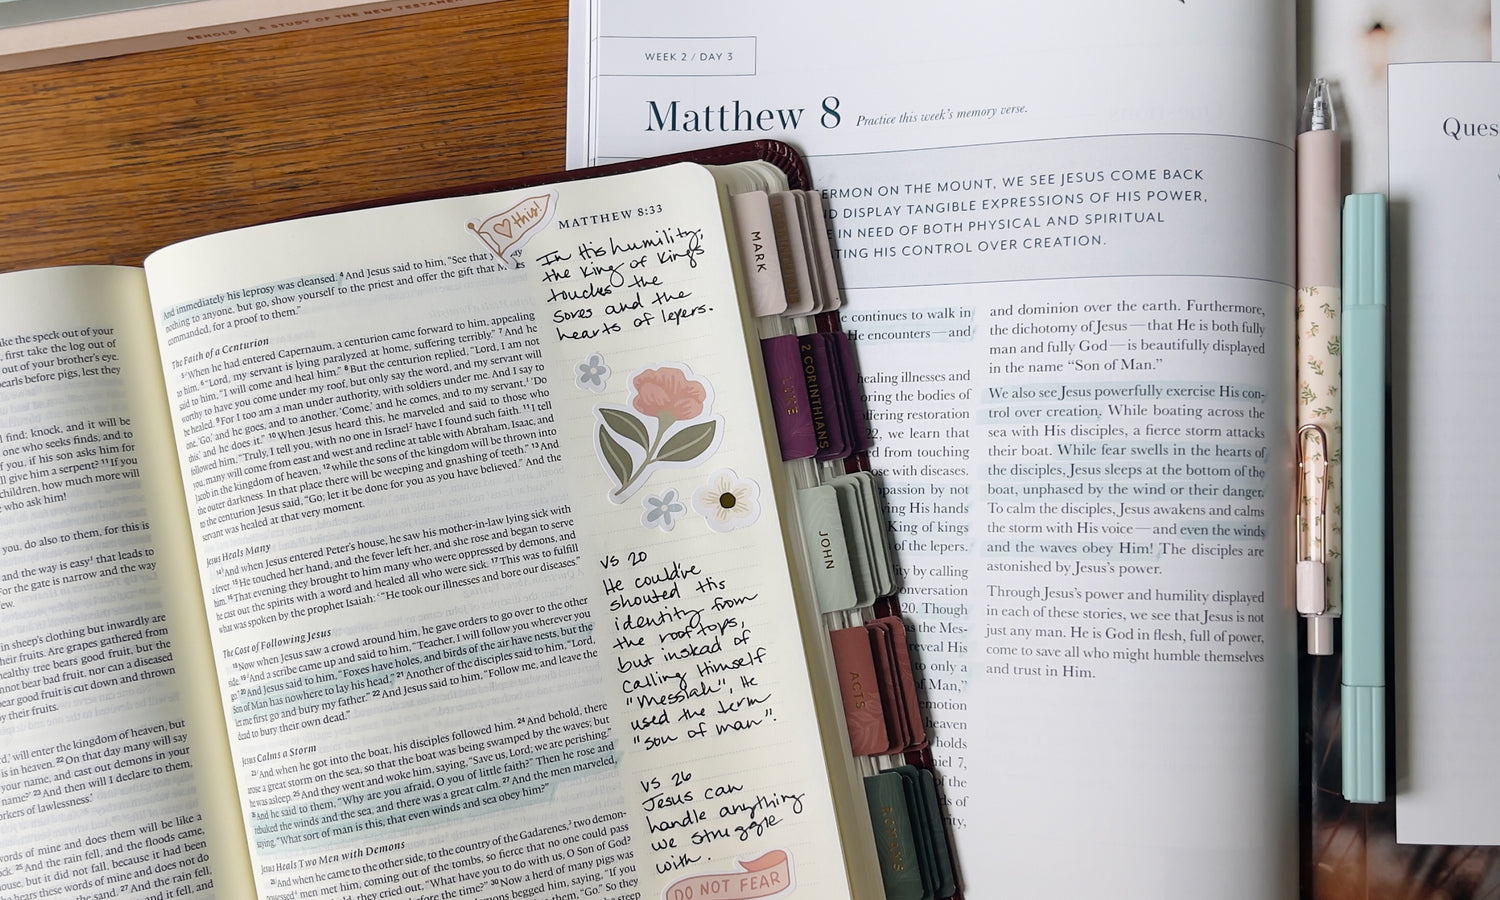 BEHOLD | A STUDY OF THE NEW TESTAMENT
WEEK 2 / DAY 3
Matthew 8 Practice this week's memory verse.
ERMON ON THE MOUNT, WE SEE JESUS COME BACK
D DISPLAY TANGIBLE EXPRESSIONS OF HIS POWER,
E IN NEED OF BOTH PHYSICAL AND SPIRITUAL
TING HIS CONTROL OVER CREATION.
e continues to walk in
He encounters—and
healing illnesses and
oring the bodies of
ffering restoration
22, we learn that
ed from touching
ose with diseases.
passion by not
ing His hands
King of kings
of the lepers.
ity by calling
onversation
20. Though
as the Mes-
reveal His
to only a
of Man,"
emotion
heaven
holds
niel 7,
of the
ds of
rity,
and dominion over the earth. Furthermore,
the dichotomy of Jesus—that He is both fully
man and fully God—is beautifully displayed
in the name "Son of Man."
We also see Jesus powerfully exercise His con-
trol over creation. While boating across the
sea with His disciples, a fierce storm attacks
their boat. While fear swells in the hearts of
the disciples, Jesus sleeps at the bottom of the
boat, unphased by the wind or their danger.
To calm the disciples, Jesus awakens and calms
the storm with His voice—and even the winds
and the waves obey Him! The disciples are
astonished by Jesus's power.
Through Jesus's power and humility displayed
in each of these stories, we see that Jesus is not
just any man. He is God in flesh, full of power,
come to save all who might humble themselves
and trust in Him.
Ques
ake the speck out of your
, first take the log out of
out of your brother's eye.
pearls before pigs, lest they
l find; knock, and it will be
one who seeks finds, and to
f you, if his son asks him for
will give him a serpent? 11 If you
children, how much more will
who ask him!
you, do also to them, for this
and the way is easy¹ that leads to
For the gate is narrow and the way
few.
in sheep's clothing but inwardly are
their fruits. Are grapes gathered from
healthy tree bears good fruit, but the
nnot bear bad fruit, nor can a diseased
ear good fruit is cut down and thrown
y their fruits.
d,' will enter the kingdom of heaven, but
is in heaven. 22 On that day many will say
your name, and cast out demons in your
name?' 23 And then will I declare to them,
orkers of lawlessness.'
words of mine and does them will be like a
ock. 25 And the rain fell, and the floods came,
house, but it did not fall, because it had been
o hears these words of mine and does not do
and. 27 And the rain fell,
MATTHEW 8:33
♡ this!
And immediately his leprosy was cleansed. 4 And Jesus said to him, "See that you say
nothing to anyone, but go, show yourself to the priest and offer the gift that Moses
commanded, for a proof to them."
The Faith of a Centurion
5 When he had entered Capernaum, a centurion came forward to him, appealing
to him, 6 "Lord, my servant is lying paralyzed at home, suffering terribly." 7 And he
said to him, "I will come and heal him." 8 But the centurion replied, "Lord, I am not
worthy to have you come under my roof, but only say the word, and my servant will
be healed. 9 For I too am a man under authority, with soldiers under me. And I say to
one, 'Go,' and he goes, and to another, 'Come,' and he comes, and to my servant,¹ 'Do
this,' and he does it." 10 When Jesus heard this, he marveled and said to those who
followed him, "Truly, I tell you, with no one in Israel² have I found such faith. 11 I tell
you, many will come from east and west and recline at table with Abraham, Isaac, and
Jacob in the kingdom of heaven, 12 while the sons of the kingdom will be thrown into
the outer darkness. In that place there will be weeping and gnashing of teeth." 13 And
to the centurion Jesus said, "Go; let it be done for you as you have believed." And the
servant was healed at that very moment.
Jesus Heals Many
14 And when Jesus entered Peter's house, he saw his mother-in-law lying sick with
a fever. 15 He touched her hand, and the fever left her, and she rose and began to serve
him. 16 That evening they brought to him many who were oppressed by demons, and
he cast out the spirits with a word and healed all who were sick. 17 This was to fulfill
what was spoken by the prophet Isaiah: "He took our illnesses and bore our diseases."
The Cost of Following Jesus
18 Now when Jesus saw a crowd around him, he gave orders to go over to the other
side. 19 And a scribe came up and said to him, "Teacher, I will follow you wherever you
go." 20 And Jesus said to him, "Foxes have holes, and birds of the air have nests, but the
Son of Man has nowhere to lay his head." 21 Another of the disciples said to him, "Lord,
let me first go and bury my father." 22 And Jesus said to him, "Follow me, and leave the
dead to bury their own dead."
Jesus Calms a Storm
23 And when he got into the boat, his disciples followed him. 24 And behold, there
arose a great storm on the sea, so that the boat was being swamped by the waves; but
he was asleep. 25 And they went and woke him, saying, "Save us, Lord; we are perishing."
26 And he said to them, "Why are you afraid, O you of little faith?" Then he rose and
rebuked the winds and the sea, and there was a great calm. 27 And the men marveled,
saying, "What sort of man is this, that even winds and sea obey him?"
Jesus Heals Two Men with Demons
28 And when he came to the other side, to the country of the Gadarenes,³ two demon-
possessed⁴ men met him, coming out of the tombs, so fierce that no one could pass
they cried out, "What have you to do with us, O Son of God?
before the time?" 30 Now a herd of many pigs was
demons begged him, saying, "If you
them, "Go." So they
In His humility,
the King of Kings
touches the
sores and the
hearts of lepers.
VS 20
He could've
shouted His
identity from
the rooftops,
but instead of
calling Himself
"Messiah", He
used the term
"son of man".
VS 26
Jesus can
handle anything
we struggle
with.
DO NOT FEAR
MARK
LUKE
2 CORINTHIANS
JOHN
ACTS
ROMANS